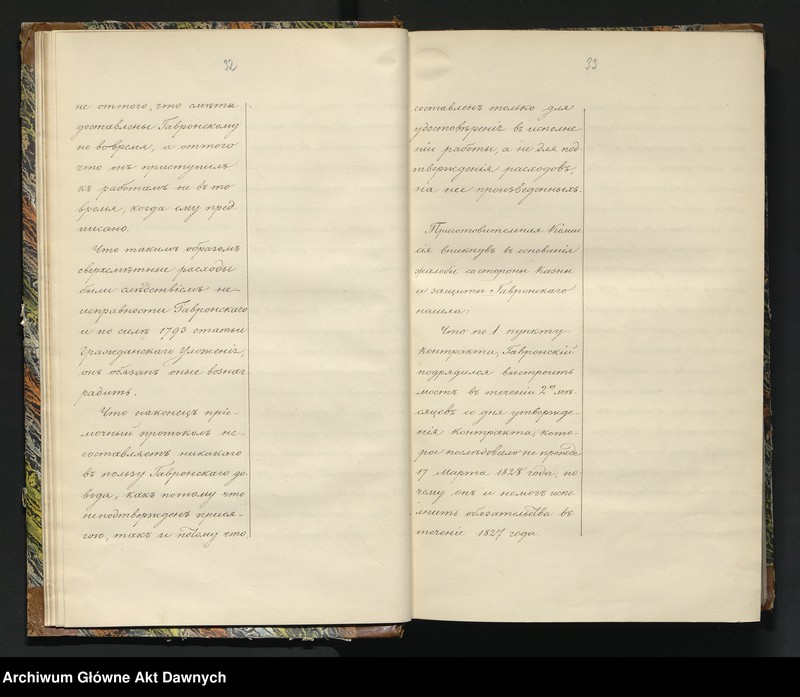 32
не оттого, что смѣты
доставлены Гавронскому
не во время, а оттого
что онъ приступилъ
къ работамъ не въ то
время, когда ему пред
писано.
Что такимъ образомъ
сверхсмѣтные расходы
были слѣдствіемъ не-
исправности Гавронскаго
и по силѣ 1793 статьи
Гражданскаго Уложенія,
онъ обязанъ оные вознаг
радить.
Что наконецъ пріе-
мочный протоколъ не-
составляетъ никакого
въ пользу Гавронскаго до-
вода, какъ потому что
неподтвержденъ прися-
гою, такъ и потому что
33
составленъ только для
удостовѣренія въ исполне-
ніи работы, а не для под
твержденія расходовъ,
на нее произведенныхъ.
Приготовительная Комми
сія вникнувъ въ основанія
жалобы со стороны Казны
и защиты Гавронскаго
нашла:
Что по 1 пункту
контракта, Гавронскій
подрядился выстроить
мостъ въ теченіи 2хъ мѣ-
сяцевъ со дня утвержде-
нія контракта, кото-
рое послѣдовало не прежде
17 Марта 1828 года, по-
чему онъ и немогъ испо-
лнить обязательства въ
теченіе 1827 года.
Archiwum Główne Akt Dawnych